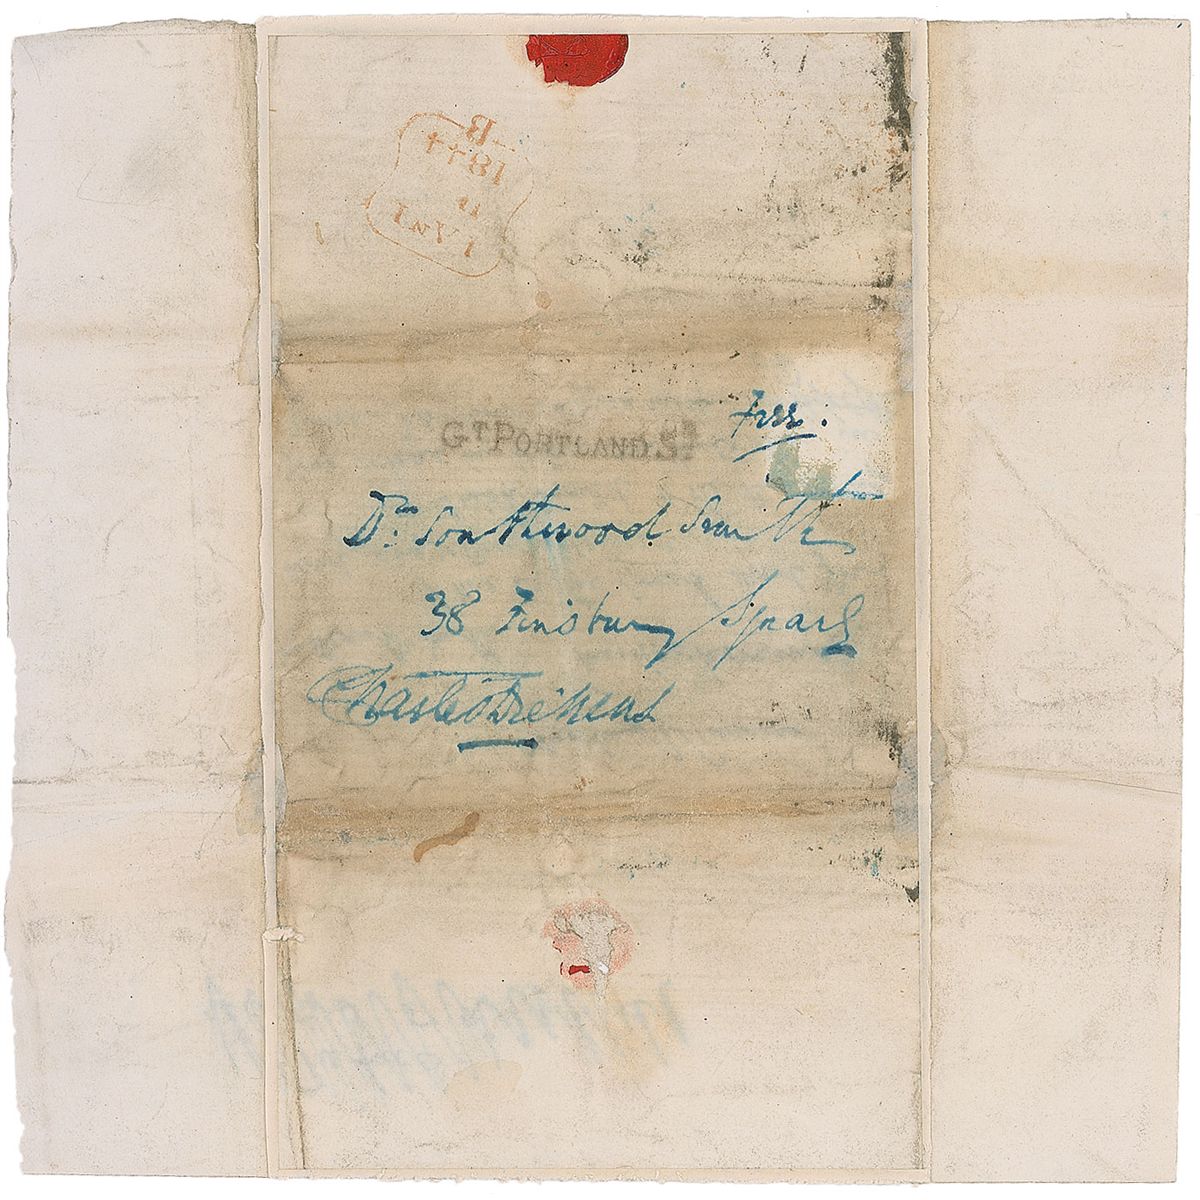 B
1844
JA
Gt PORTLAND St
Free.
Dr. Southwood Smith
38 Finsbury Square
Charles Dickens